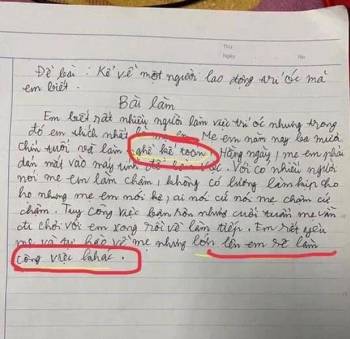 Thứ
Ngày No
Đề bài: Kể về một người lao động trí óc mà
em biết.
Bài làm
Em biết rất nhiều người làm việc trí óc nhưng trong
đó em thích nhất là mẹ em. Mẹ em năm nay ba mươi
chín tuổi và làm nghề kế toán. Hằng ngày, mẹ em phải
dán mắt vào máy tính để làm việc. Vì có nhiều người
nói mẹ em làm chậm, không có lương làm kịp cho
họ nhưng mẹ em mới kệ, ai nói cứ nói mẹ chậm cứ
chậm. Tuy công việc bận rộn nhưng cuối tuần mẹ vẫn
đi chơi với em xong rồi về làm tiếp. Em rất yêu
mẹ và tự hào về mẹ nhưng lớn lên em sẽ làm
công việc khác.